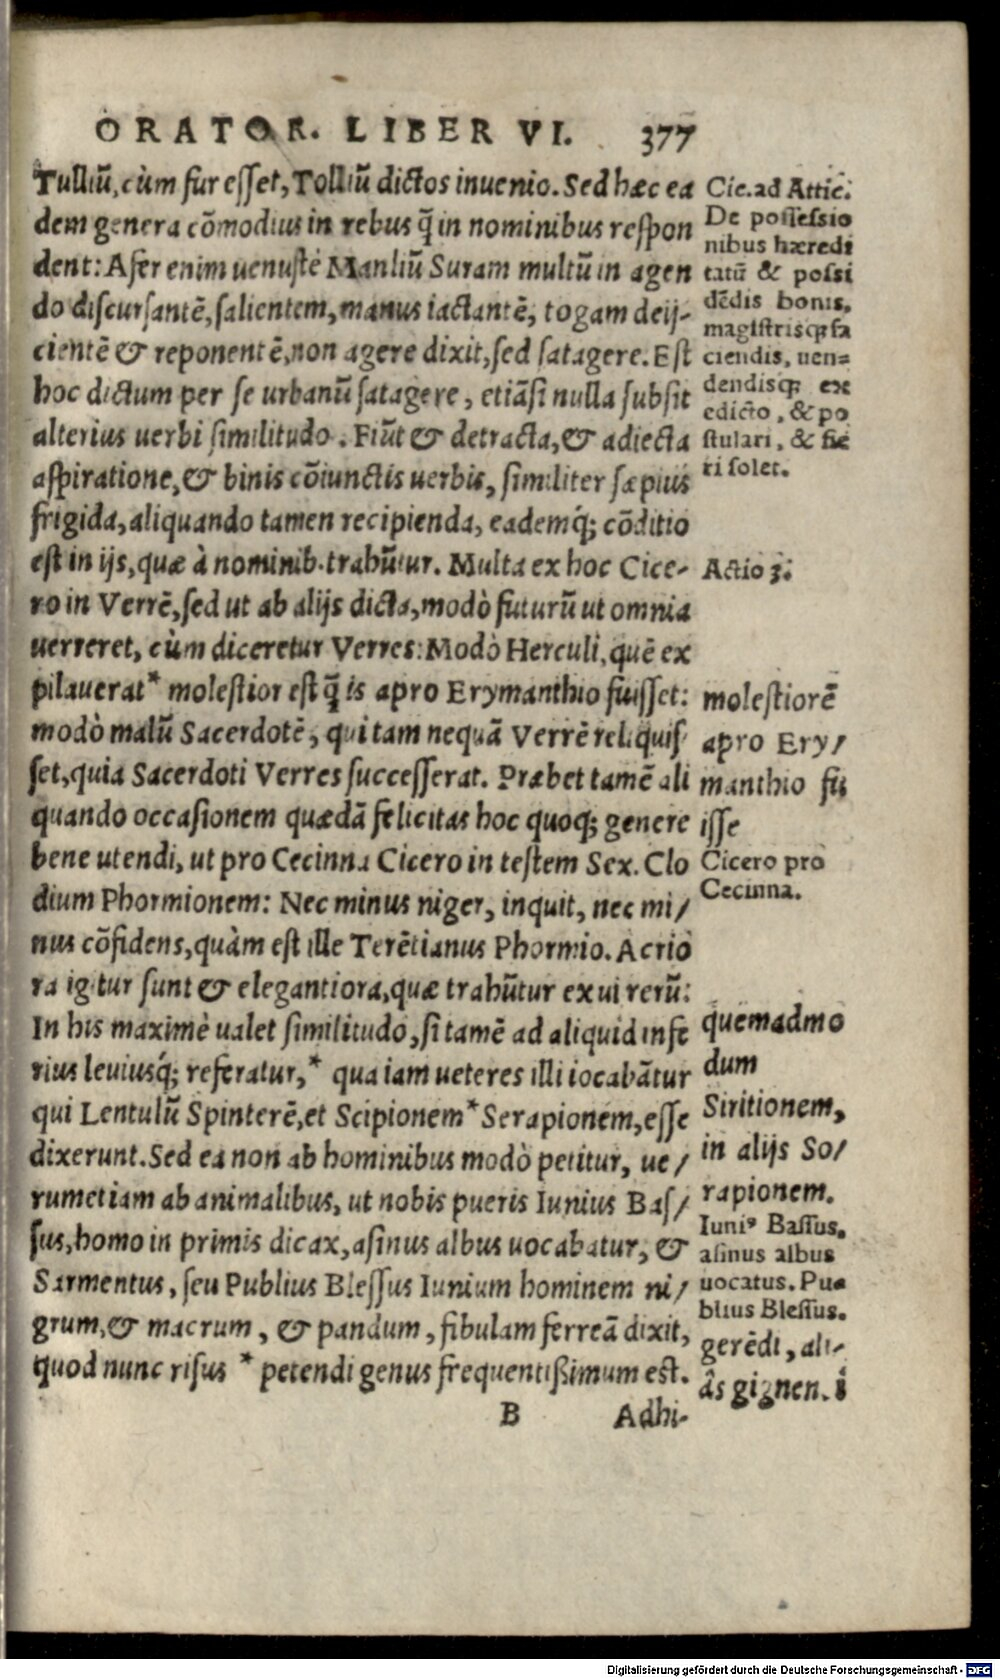 ORATOR. LIBER VI. 377
Tulliũ, cùm fur esset, Tolliũ dictos inuenio. Sed hæc ea
dem genera cõmodius in rebus q̃ in nominibus respon
dent: Afer enim uenustè Manliũ Suram multũ in agen
do discursantẽ, salientem, manus iactantẽ, togam deij-
cientẽ & reponentẽ, non agere dixit, sed satagere. Est
hoc dictum per se urbanũ satagere, etiãsi nulla subsit
alterius uerbi similitudo. Fiũt & detracta, & adiecta
aspiratione, & binis cõiunctis uerbis, similiter sæpius
frigida, aliquando tamen recipienda, eademq́; cõditio
est in ijs, quæ à nominib. trahũtur. Multa ex hoc Cice-
ro in Verrẽ, sed ut ab alijs dicta, modò futurũ ut omnia
uerreret, cùm diceretur Verres: Modò Herculi, quẽ ex
pilauerat* molestior est q̃ is apro Erymanthio fuisset:
modò malũ Sacerdotẽ, qui tam nequã Verrẽ reliquis-
set, quia Sacerdoti Verres successerat. Præbet tamẽ ali
quando occasionem quædã felicitas hoc quoq; genere
bene utendi, ut pro Cecinna Cicero in testem Sex. Clo
dium Phormionem: Nec minus niger, inquit, nec mi/
nus cõfidens, quàm est ille Terẽtianus Phormio. Acrio
ra igitur sunt & elegantiora, quæ trahũtur ex ui rerũ:
In his maximè ualet similitudo, si tamẽ ad aliquid infe
rius leuiusq́; referatur,* qua iam ueteres illi iocabãtur
qui Lentulũ Spinterẽ, et Scipionem* Serapionem, esse
dixerunt. Sed ea non ab hominibus modò petitur, ue/
rumetiam ab animalibus, ut nobis pueris Iunius Bas/
sus, homo in primis dicax, asinus albus uocabatur, &
Sarmentus, seu Publius Blessus Iunium hominem ni/
grum, & macrum, & pandum, fibulam ferreã dixit,
quod nunc risus * petendi genus frequentißimum est.
B Adhi-
Cic. ad Attic.
De possessio
nibus hæredi
tatũ & possi
dẽdis bonis,
magistrisq; fa
ciendis, uen=
dendisq; ex
edicto, & po
stulari, & fie
ri solet.
Actio 3.
molestiorẽ
apro Ery/
manthio fu
isse
Cicero pro
Cecinna.
quemadmo
dum
Siritionem,
in alijs So/
rapionem.
Iuniꝰ Bassus,
asinus albus
uocatus. Pu=
blius Blessus.
gerẽdi, ali-
âs gignen.
Digitalisierung gefördert durch die Deutsche Forschungsgemeinschaft - DFG